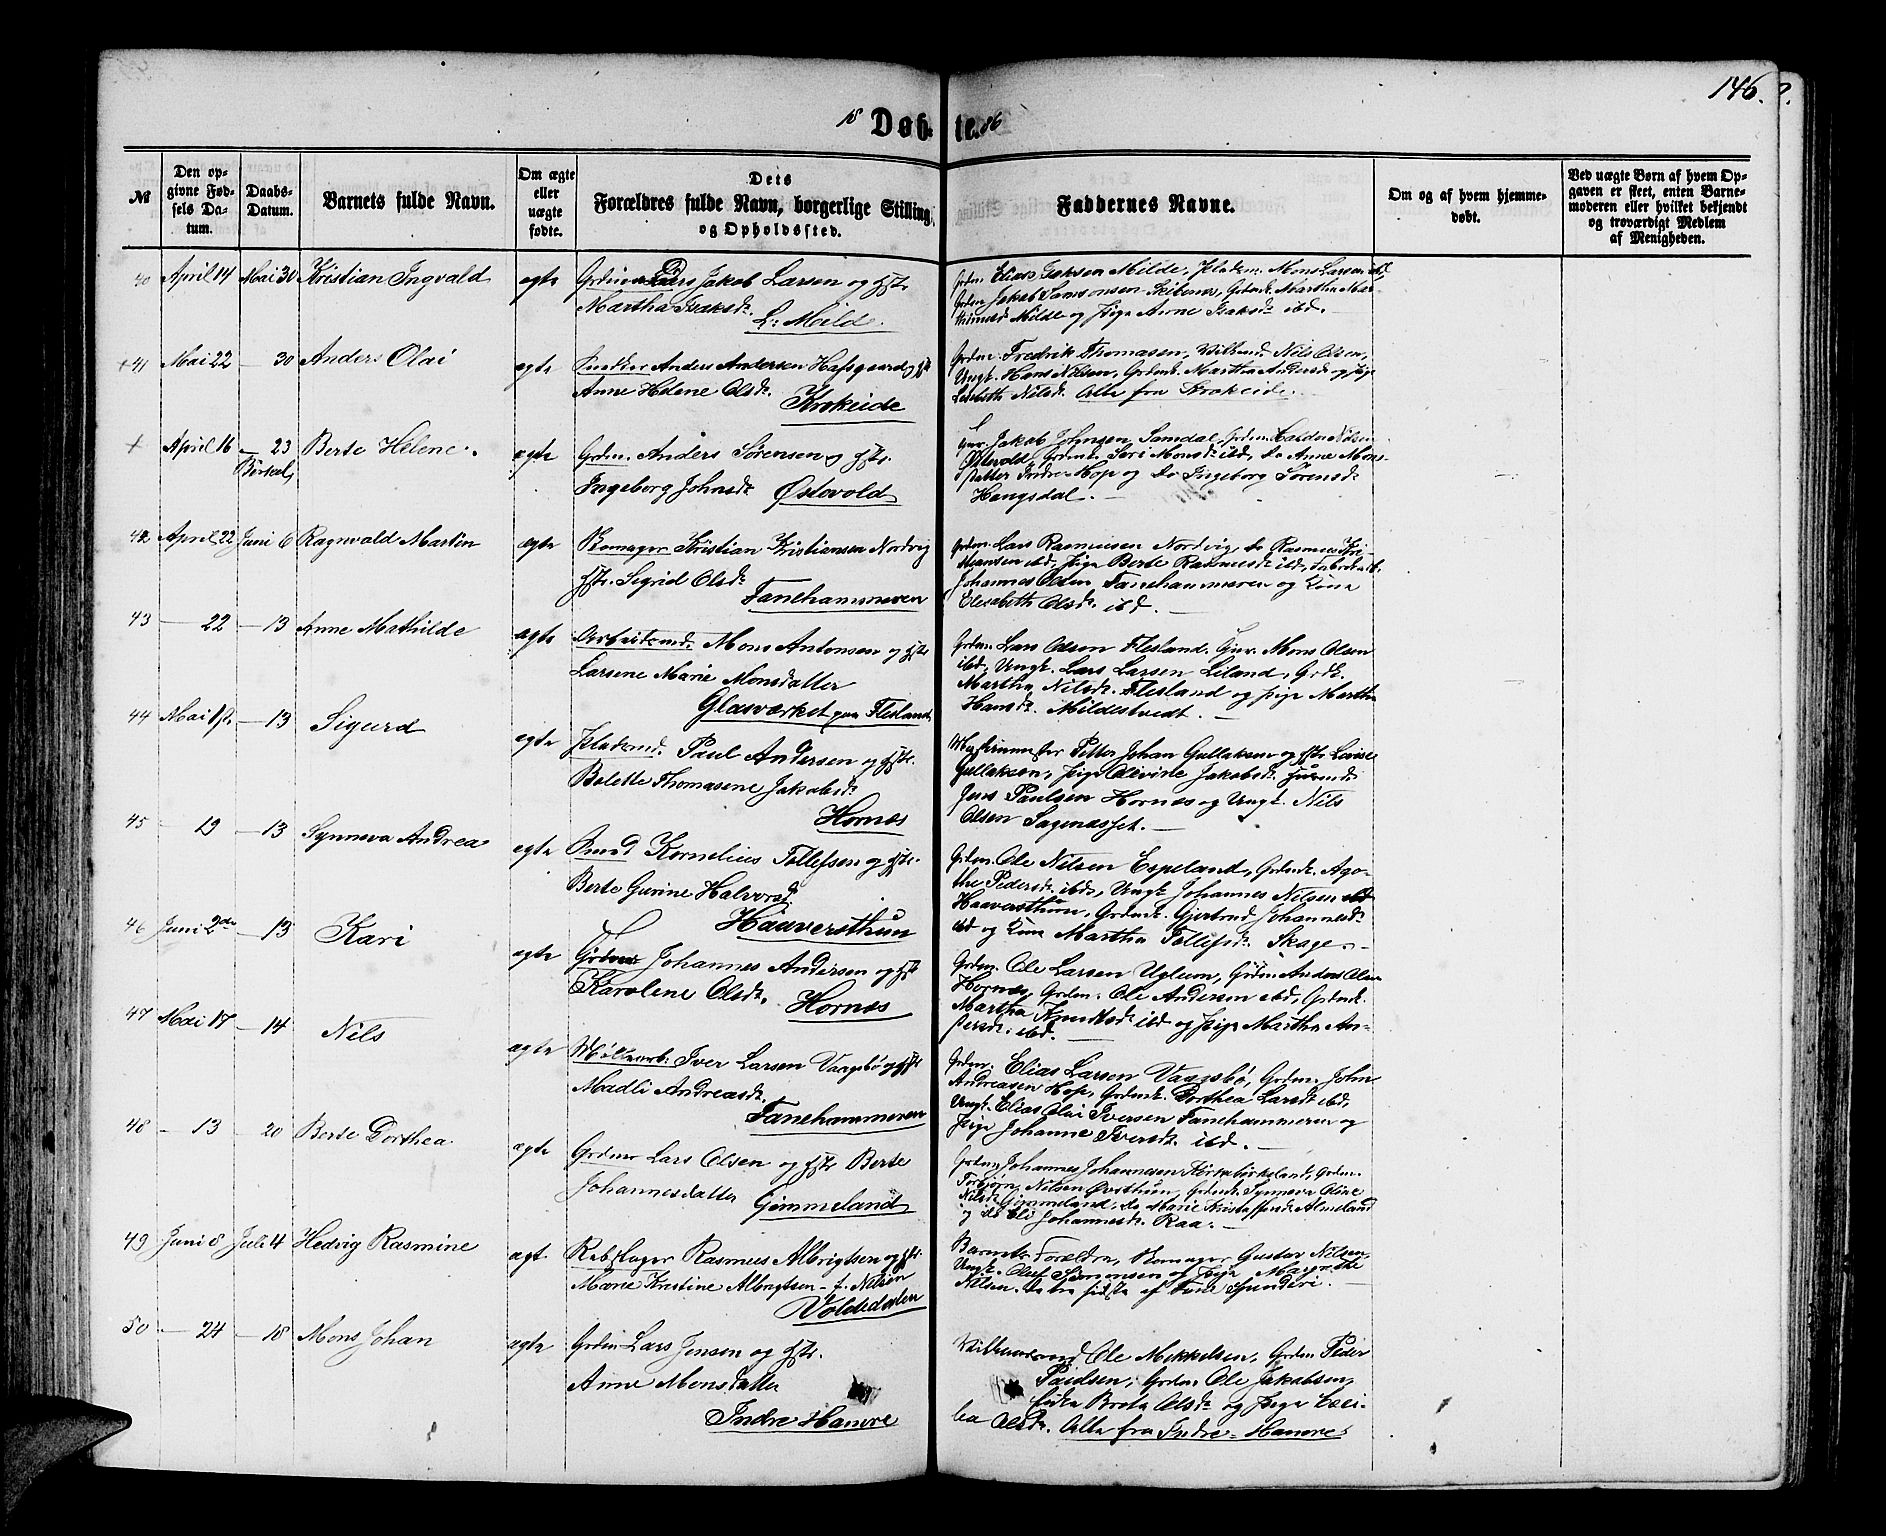 146.
18 Døbte. 86
№
Den opgivne Fødsels Datum.
Daabs-Datum.
Barnets fulde Navn.
Om ægte eller uægte fødte.
Dets Forældres fulde Navn, borgerlige Stilling, og Opholdssted.
Faddernes Navne.
Om og af hvem hjemmedøbt.
Ved uægte Børn af hvem Opgaven er skeet, enten Barnemoderen eller hvilket bekjendt og troværdigt Medlem af Menigheden.
40 April 14 Mai 30 Kristian Ingvald ægte Jakob Larsen og Hstr.
Martha Isaksdr.
L: Milde.
Grdm. Elias Isaksen Milde, Pladsm. Mons Larsen ibd,
Grdm. Jakob Samsonsen Skibenes, Grdmk. Martha Mar-
Milde og Pige Anne Isaksdr ibd.
+41 Mai 22 — 30 Anders Olai ægte Snedker Anders Andersen Hafsgaard og Hstr
Anne Helene Olsdr.
Krokeide
Grdm. Fredrik Thomasen, Nils Olsen,
Ungk. Hans Nilsen, Grdmk. Martha og Pige
Lisbeth Nilsdr. Alle fra Krokeide.
+ April 16 — 23 Berte Helene. ægte Grdm. Anders Sørensen og Hstr.
Birkel,
Ingeborg Johnsdr Østevold
Jakob Johnsen Samdal, Grdm. Haldor Nilsen
Østevold, Grdmk. Siri Monsdr ibd, Do Anne Mons-
datter Indre-Hop og Do Ingeborg Sørensdr
Haugsdal.
42 April 22 Juni 6 Ragnvald Martin ægte Remager Kristian Kristiansen Nordvig
Hstr. Sigrid Olsdr
Fanehammeren
Grdm. Lars Rasmusen Nordvig, do Rasmus Kri-
stiansen ibd, Pige Berte Rasmusdr ibd, Fabrikarb.
Johannes Olsen Fanehammeren og Kone
Elisabeth Olsdr. ibd.
43 — 22 — 13 Anne Mathilde ægte Arbeidsmd. Mons Antonsen og Hstr
Larsene Marie Monsdatter
Glasværket paa Flesland
Grdm. Lars Olsen Flesland. Gmr. Mons Olsen
ibd, Ungk. Lars Larsen Liland, Grdk.
Martha Nilsdr. Flesland og Pige Martha
Hansdr. Mildestvedt.
44 Mai — 13 Sigurd ægte Pladsmd. Paul Andersen og Hstr.
Bolette Thomasene Jakobsdr
Hornæs
Petter Johan Gullaksen og Hstr. Lovise
Gullaksen, Pige Olevine Jakobsdr
Jens Paulsen Hornæs og Ungk. Nils
Olsen Sagenæsset.
45 — 19 — 13 Synneva Andrea ægte Smed Kornelius Tollefsen og Hstr.
Berte Gurine Halvorsdr.
Haaversthun
Grdm. Ole Nilsen Espeland, Grdmk. Aga-
the Pedersdr. ibd, Ungk. Johannes Nilsen
Haaversthun, Grdmk. Gjertrud Johannesdr
ibd og Kone Martha Tollefsdr. Skage.
46 Juni 2den — 13 Kari ægte Grdm Johannes Andersen og Hstr
Karolene Olsdr. Hornæs
Grdm. Ole Larsen Uglum, Grdm. Anders Olsen
Hornæs, Grdm. Ole Andersen ibd, Grdmk.
Martha Knudsdr ibd og Pige Martha An-
dersdr. ibd.
47 Mai 17 — 14 Nils ægte Møllearb. Iver Larsen Vaagsbø og Hstr
Madli Andreasdr.
Fanehammeren
Grdm. Elias Larsen Vaagsbø, Grdm. John
Andreasen Hop, Grdmk. Dorthea Larsdr ibd,
Ungk. Elias Olai Iversen Fanehammeren og
Pige Johanne Iversdr. ibd.
48 — 13 — 20 Berte Dorthea ægte Grdm Lars Olsen og Hstr Berte
Johannesdatter Gimmeland
Grdm. Johannes Johannesen Kirkebirkeland, Grdm.
Torbjørn Nilsen Øvsthun, Grdmk. Synneva Oline
Nilsdr Gimmeland, do Marie Kristoffersdr Almeland
og do Eli Johannesdr. Raa.
49 Juni 8 Juli 4 Hedvig Rasmine ægt. Rebslager Rasmus Albrigtsen og Hstr.
Marie Kristine Albrigtsen f. Nilsen
Voldedalen
Barnets Forældre, Remager Gustav Nilsen,
Ungk. Oluf Simonsen og Pige Margrethe
Nilsen.
50 — 24 — 18 Mons Johan ægte Grdm Lars Jensen og Hstr.
Anne Monsdatter
Indre Hamre
Ole Mikkelsen, Grdm. Peder
Paulsen, Grdm. Ole Jakobsen,
Enke Brita Olsdr og Pige Ceci-
lia Olsdr. Alle fra Indre-Hamre